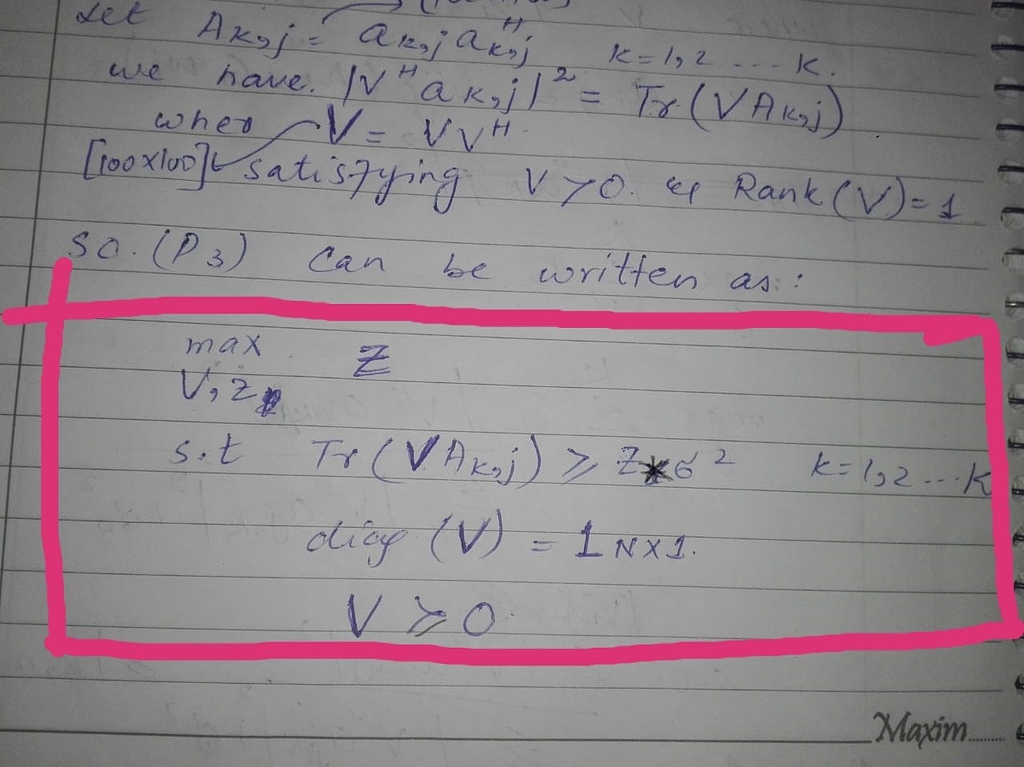 Let Ak,j = ak,j aᴴk,j k=1,2 ... K.
we have. |Vᴴ ak,j|² = Tr(VAk,j)
wher V = VVᴴ.
[100x100] satisfying V>0. & Rank(V)=1
so. (P3) can be written as:
max Z
V,z
s.t Tr(VAk,j) ≥ Z*σ² k=1,2 ... K
diag (V) = 1N×1.
V ≥ 0
Maxim